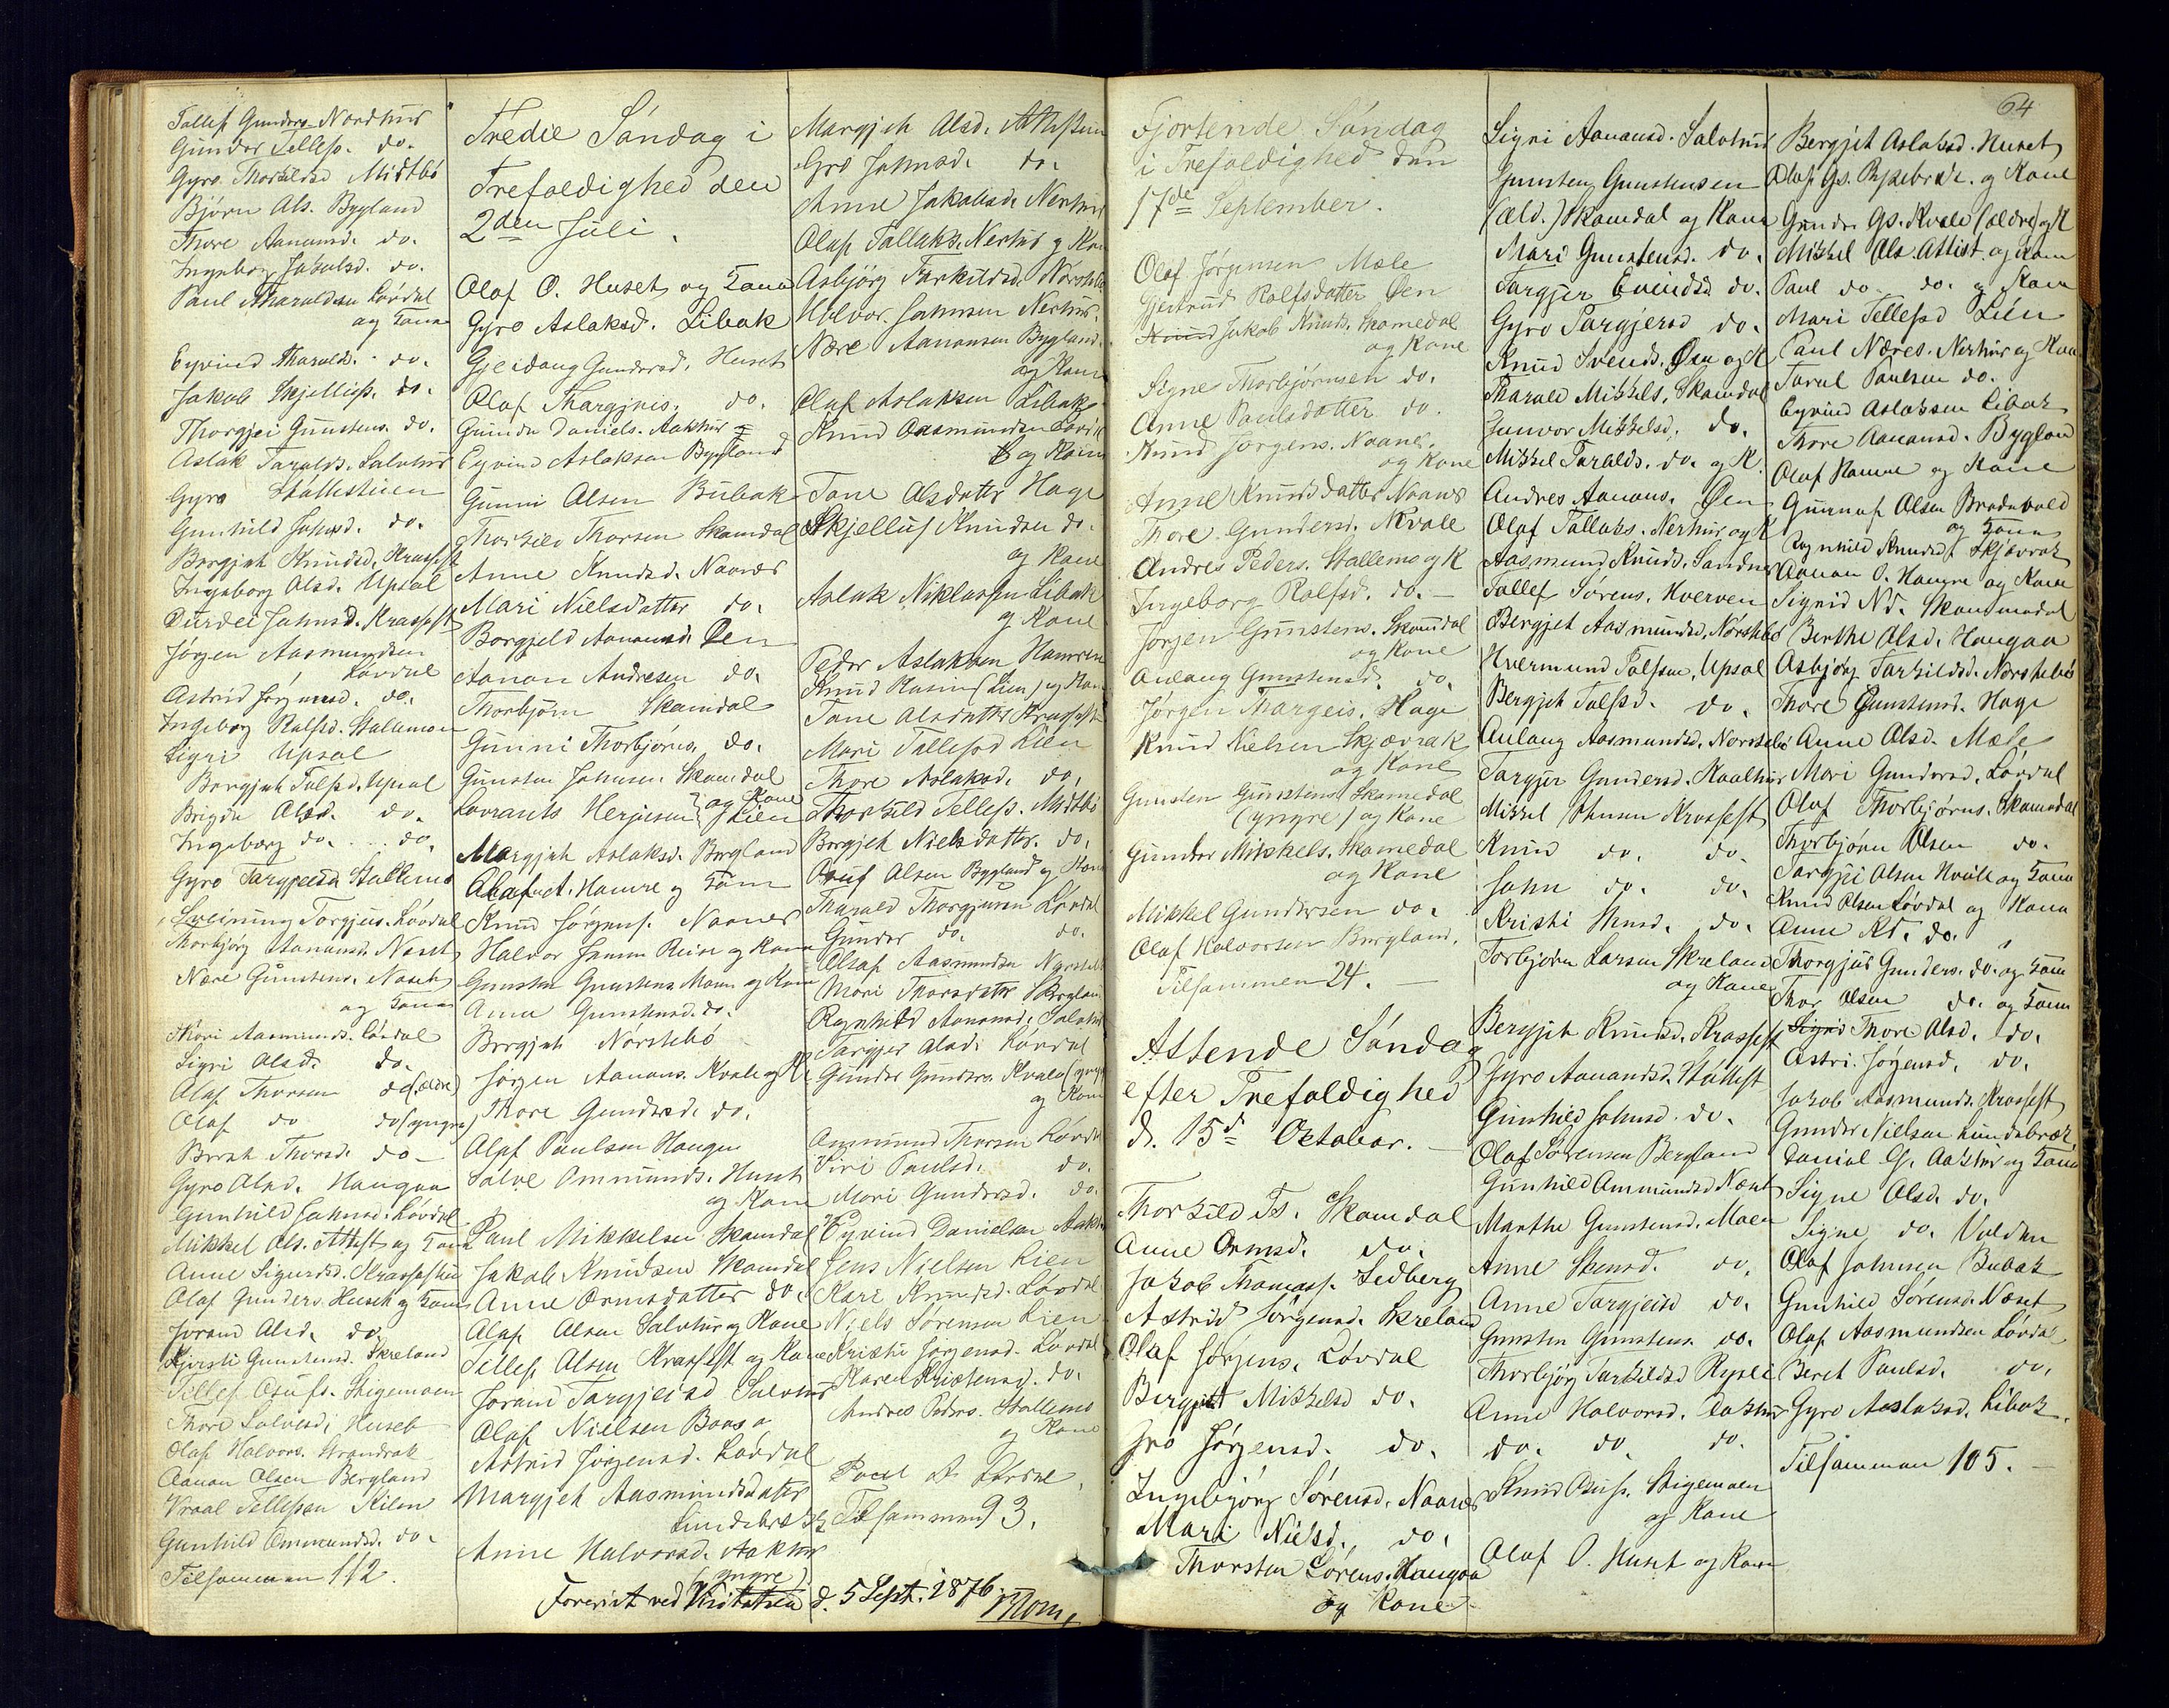 Tallef Gunders. Nordhus
Gunder Tellefs. do.
Gyro Thorkildsd Midtbö
Björn Als. Bygland
Thore Aanansd. do.
Ingeborg Jakobsd. do.
Paul Tharaldsen Lövdal
og Kone
Eyvind Tharalds. do.
Jakob Skjellefs. do.
Thorgjei Gunstens. do.
Aslak Taralds. Salvhus
Gyro Stallestuen
Gunhild Johnsd. do.
Bergjet Knudsd. Krossfest
Ingeborg Alsd. Upsal
Johnsd. Krossfest
Jörgen Aasmundsen
Lövdal
Astrid Jörgensd. do.
Ingeborg Rolfsd. Stalemoen
Sigri Upsal
Bergjet Talfsd. Upsal
Brigta Olsd. do.
Ingeborg do. do.
Gyro Targjeisd. Stallemo
Sveinung Torgjus. Lövdal
Thorbjörg Aanansd. Næset
Nære Gunstens. Næset
og Kone
Thori Aasmunds. Lövdal
Sigri Olsd. do.
Olaf Thorsen do (ældre)
Olaf do do (yngre)
Beret Thorsd. do
Gyro Alsd. Haugaa
Gunhild Johnsd. Lövdal
Mikkel Ols. Attest og Kone
Anne Sigurdsd. Krossfest
Olaf Gunders. Huset og Kone
Joran Alsd. do.
Kjersti Gunstensd. Skreland
Tellef Osufs. Stigemoen
Thore Salvesd. Huseb
Olaf Halvors. Strandrak
Aanon Olsen Bergland
Vraal Tellefsen Kilen
Gunhild Ommundsd. do.
Tilsammen 112.
Tredie Söndag i
Trefoldighed den
2den Juli.
Olaf O. Huset og Kone
Gyro Aslaksd. Libak
Gjeidaug Gundersd. Huset
Olaf Thargjeis. do.
Gunder Daniels. Aakhus
Eyvind Aslaksen Bygland
Gunni Olsen Bubak
Thorkild Thorsen Skamdal
Anne Knudsd. Naanes
Mari Nielsdatter do.
Borgjeld Aanonsd. Öen
Aanon Andresen do.
Thorbjörn Skamdal
Gunni Thorbjörns. do.
Gunsten Johnsen Skamdal
og Kone
Lavrants Herjusen Lien
Margjet Aslaksd. Bergland
Olaf A. Hamre og Kone
Knud Jörgens. Naanes
Halvor Jensen Reine og Kone
Gunsten Gunstens. Moen og Kone
Anne Gunstensd. do.
Bergjet Nörstebö
Jörgen Aanons. Kvale og K
Thore Gundersd. do.
Olaf Paulsen Haugen
Salve Ommunds. Huset
og Kone
Paul Mikkelsen Skamdal
Jakob Knudsen Skamdal
Anne Ormsdatter do.
Olaf Olsen Salvhus og Kone
Tellef Olsen Krossfest og Kone
Joran Targjeisd Salvhus
Olaf Nielsen Baasa
Astrid Jörgensd. Lövdal
Margjet Aasmundsdatter
Lindebræk
Anne Halvorsd. Aakhus
(yngre)
Margjet Olsd. Attestuen
Gro Johnsd. do.
Anne Jakobsd. Nerhus
Olaf Tallaks. Nerhus og Kone
Asbjörg Tarkildsd. Nörstebö
Halvor Johnsen Nerhus.
Nære Aanonsen Bygland.
og Kone
Olaf Aslaksen Libak
Knud Aasmundsen Lövdal
og Kone
Tone Olsdatter Hage
Skjelluf Knudsen do.
og Kone
Aslak Niklassen Libak
og Kone
Peder Aslaksen Hamren
Knud Lien og Kone
Tone Olsdatter Krossfest
Mari Tallefsd Lien
Thore Aslaksd. do.
Thorkild Tellefs. Midtbö
Bergjet Nielsdatter. do.
Osuf Olsen Bygland og Kone
Tharald Thorgjusen Lövdal
Gunder do. do.
Olaf Aasmundsen Nörstebö
Mari Thorsdatter Bergland
Ragnhild Aanonsd. Salvhus
Targjer Olsd. Lövdal
Gunder Gunders. Kvale (yngre)
og Kone
Ommund Thorsen Lövdal
Siri Paulsd. do.
Mari Gundersd. do.
Eyvind Danielsen Aakhus
Jens Nielsen Lien
Kari Knudsd. Lövdal
Niels Sörensen Lien
Kristi Jörgensd. Lövdal
Karen Kristensd. do.
Andres Peders. Stallemo
og Kone
Poul A. Lövdal,
Tilsammen 93.
Forevist ved Visitatsen d. 5 Sept. 1876
64
Fjortende Söndag
i Trefoldighed den
17de September.
Olaf Jörgensen Mæle
Gjertrud Rolfsdatter Öen
Knud Jakob Knuds. Skamedal
og Kone
Signe Thorbjörnsen do.
Anne Paulsdatter do.
Knud Jörgens. Naanes.
og Kone
Anne Knudsdatter Naanes
Thore Gundersd. Kvale
Andres Peders. Stallemo og K
Ingeborg Rolfsd. do.
Jörgen Gunstens. Skamdal
og Kone
Aulaug Gunstensd. do.
Jörgen Thargeis. Hage
Knud Nielsen Skjævrak
og Kone
Gunsten Gunstens. Skamedal
(yngre) og Kone
Gunder Mikkels. Skamedal
og Kone
Mikkel Gundersen do.
Olaf Halvorsen Bergland.
Tilsammen 24.
Attende Söndag
efter Trefoldighed
d. 15de October.
Thorkild Ts. Skamdal
Anne Ormsd. do.
Jakob Thomass. Sedberg
Astrid Jörgensd. Skreland
Olaf Jörgens. Lövdal
Birgjit Mikkelsd do.
Gro Jörgensd. do.
Ingebjörg Sörensd. Naanes
Mari Nielsd. do.
Thorsten Sörens. Haugaa
og Kone
Sigri Aanonsd. Salvhus
Gunsten Gunstensen
(æld.) Skamdal og Kone
Mari Gunstensd. do.
Targjer Evindsd. do.
Gyro Targjersd do.
Knud Svends. Öen og K
Tharald Mikkels. Skamdal
Gunvor Mikkelsd. do.
Mikkel Taralds. do. og K.
Andres Aanons. Öen
Olaf Tallaks. Nerhus og K
Aasmund Knuds. Sandnes
Tallef Sörens. Hverven
Bergjet Aasmundsd. Nörstebö
Hvermund Talfsen. Upsal
Bergjet Talfsd. do.
Aulaug Aasmundsd. Norstebö
Targjer Gundersd. Kaalhus
Mikkel Johnsen Krossfest
Knud do. do.
John do. do.
Kristi Stensd. do.
Torbjörn Larsen Skreland
og Kone
Bergjet Knudsd. Krossfest
Gyro Aanonsd. Stallest
Gunhild Johnsd. do.
Olaf Sörensen Bergland
Gunhild Ommundsd Næset
Marthe Gunstensd. Moen
Anne Stensd. do.
Anne Targjeisd do.
Gunsten Gunstens. do.
Thorbjörg Tarkildsd Rysli
Anne Halvorsd. Aakhus
do. do. do.
Knud Osufs. Stigemoen
og Kone
Olaf O. Huset og Kone
Bergjet Aslaksd. Huset
Olaf Gs. og Kone
Gunder Gs. Kvale (ældre) og K
Mikkel Ols. Attest. og Kone
Paul do. do. og Kone
Mari Tellefsd Lien
Paul Næres. Nerhus og Kone
Tarul Paulsen do.
Eyvind Aslaksen Libak
Thore Aanonsd. Bygland
Olaf Hamre og Kone
Gunnuf Olsen Bradevold
og Kone
Ragnhild Knudsd Skjævrak
Aanon O. Hamre og Kone
Signid Nd. Skammedal
Berthe Olsd. Haugaa
Asbjörg Tarkildsd. Nörstebö
Thore Gunstensd. Hage
Anne Olsd. Mæle
Mari Gundersd. Lövdal
Olaf Thorbjörns. Skamedal
Thorbjörn Olsen do.
Targjei Olsen Kvale og Kone
Knud Olsen Lövdal og Kone
Anne Kd. do.
Thorgjus Gunders. do. og Kone
Thor Olsen do. og Kone
Sigri Thore Alsd. do.
Astri Jörgensd. do.
Jakob Aasmunds. Krossfest
Gunder Nielsen Lindebræk.
Daniel G. Aakhus og Kone
Signe Olsd. do.
Signe do. Valden
Olaf Johnsen Bubak
Gunhild Sörensd. Næset
Olaf Aasmundsen Lövdal
Beret Paulsd. do.
Gyro Aslaksd. Libak.
Tilsammen 105.